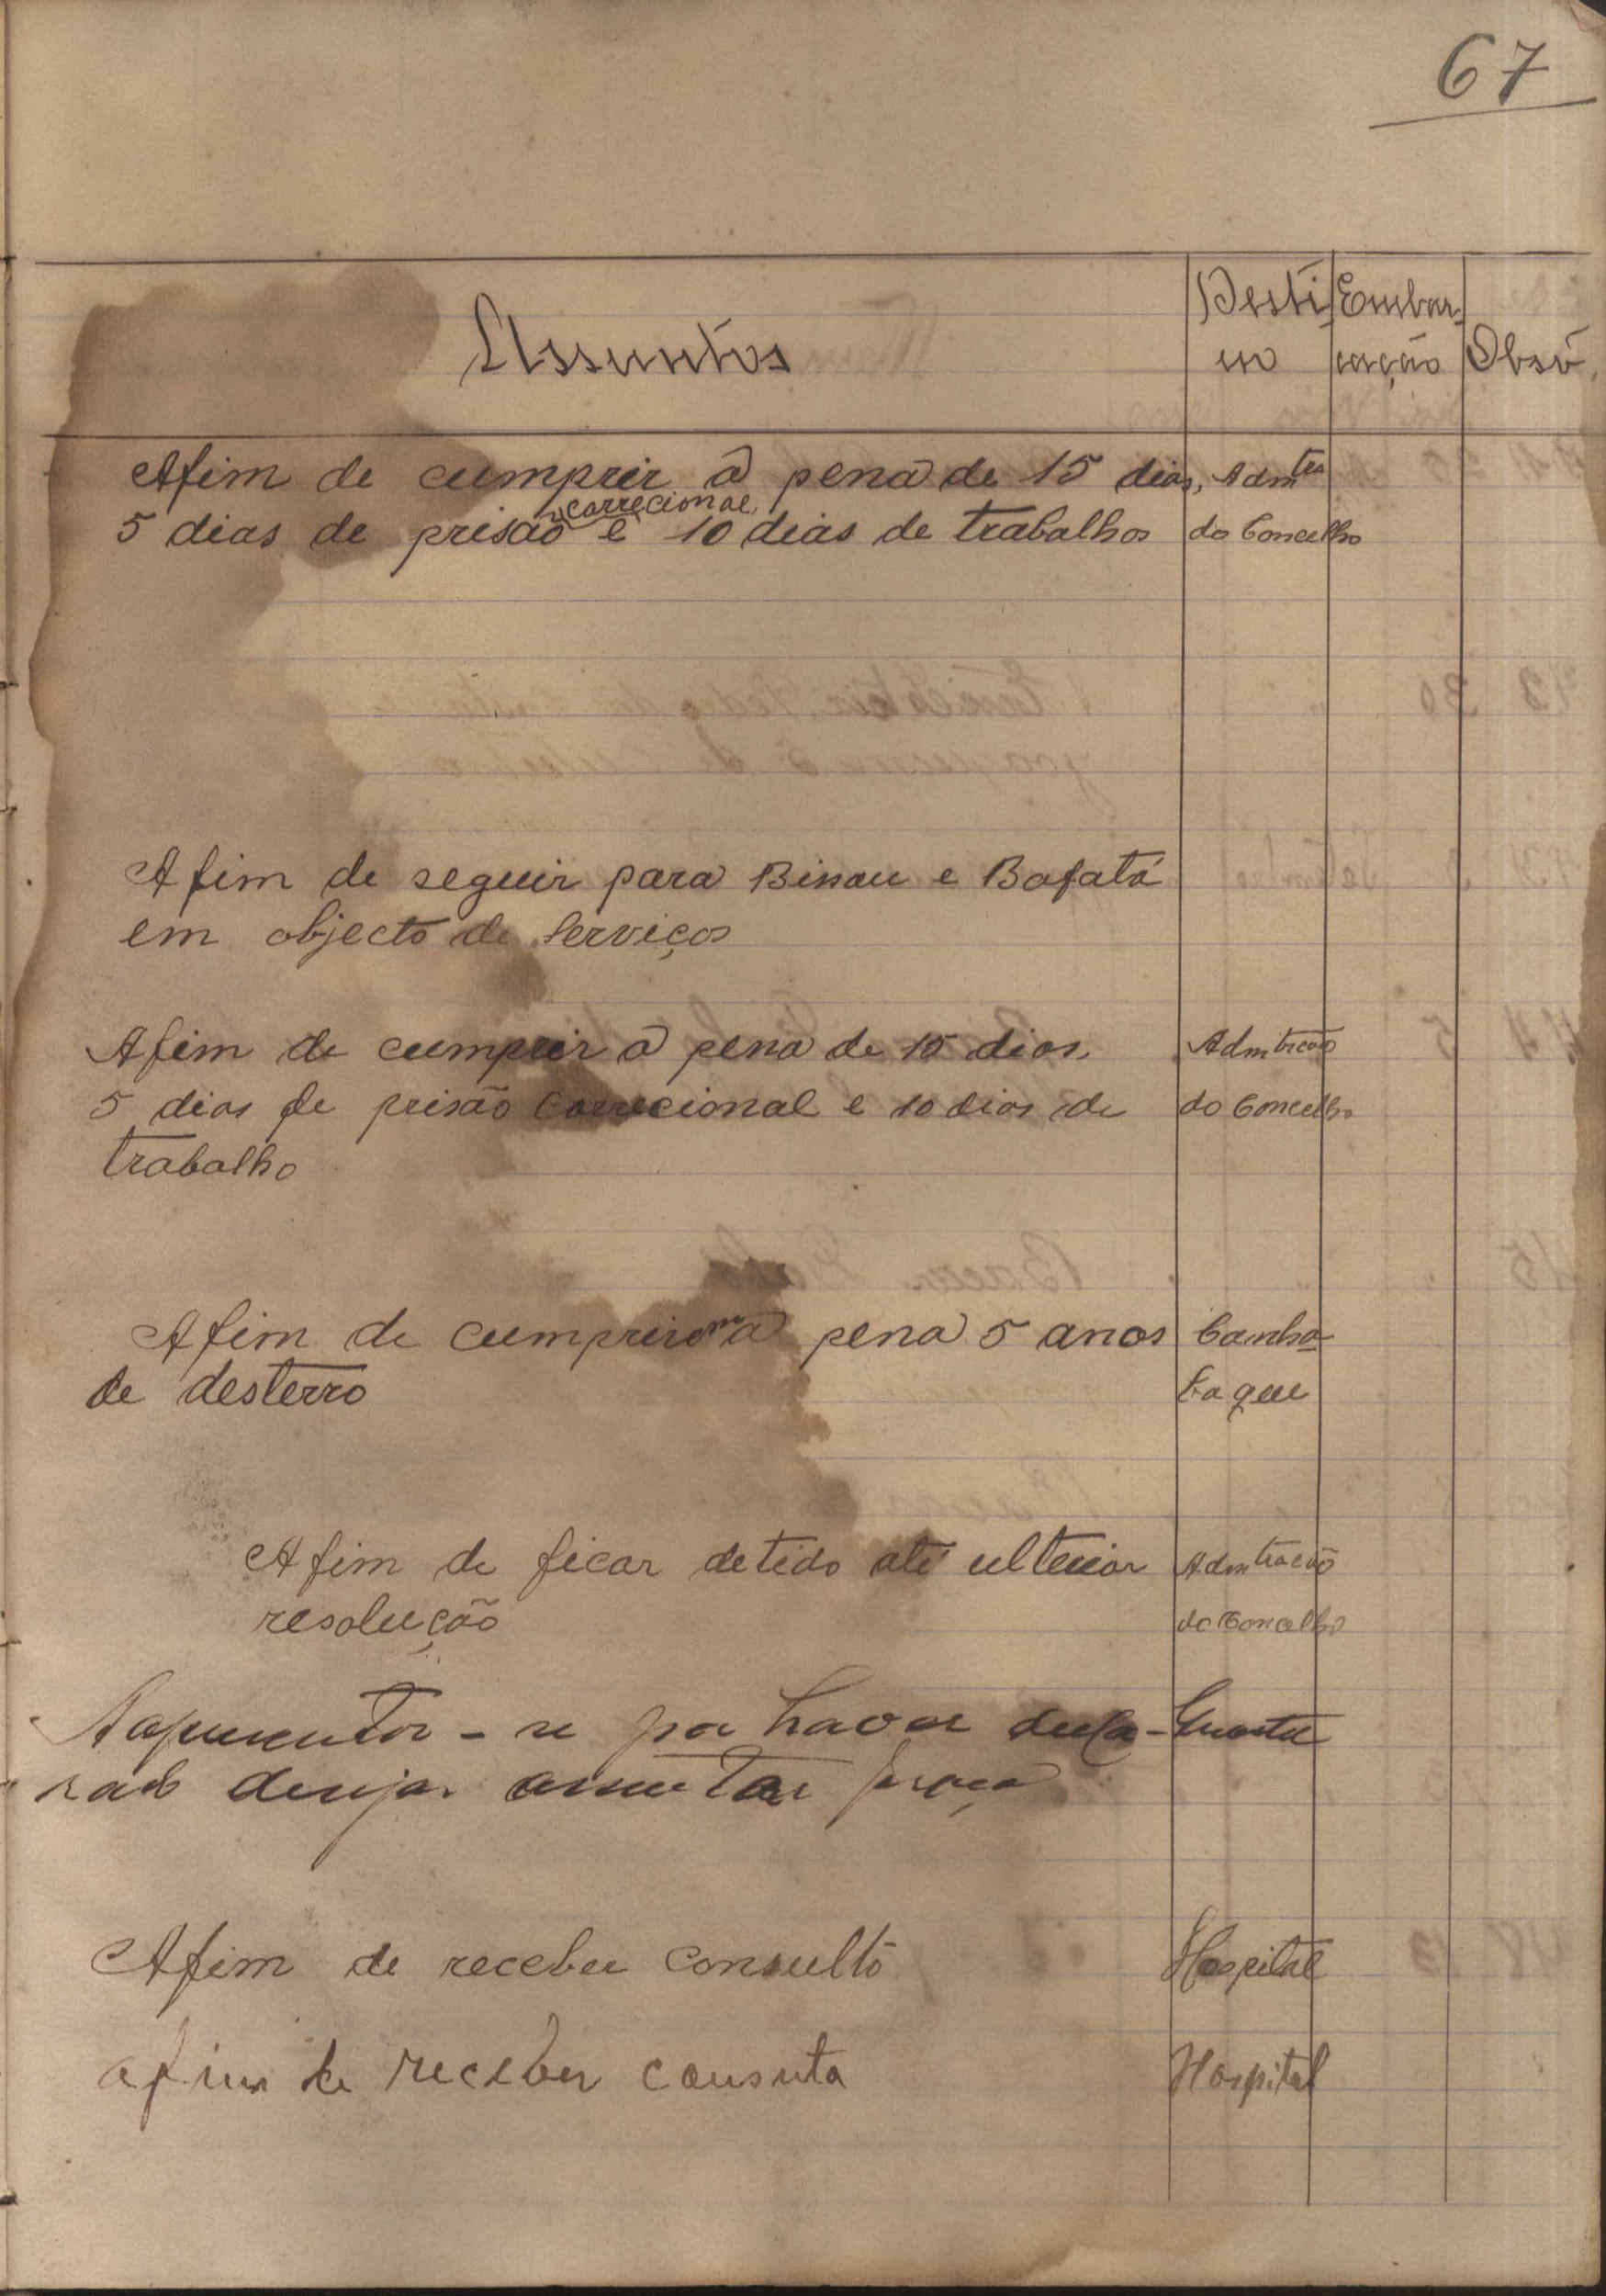 67
Assuntos
Desti
no
Embar
cação
Obsv
Afim de cumprir a pena de 15 dias, Admtra
correcional
5 dias de prisão e 10 dias de trabalhos do Concelho
Afim de seguir para Bissau e Bafatá
em objecto de serviços
Afim de cumprir a pena de 15 dias, Admtrcão
5 dias de prisão correcional e 10 dias de do Concelho
trabalho
Afim de cumprir a pena 5 anos Canha-
de desterro baque
Afim de ficar detido até ulterior Admtracão
resolução do Concelho
Aapresentar-se por haver decla-
rado desejar assentar praça
Afim de receber consulto Hospital
afim de receber consuta Hospital